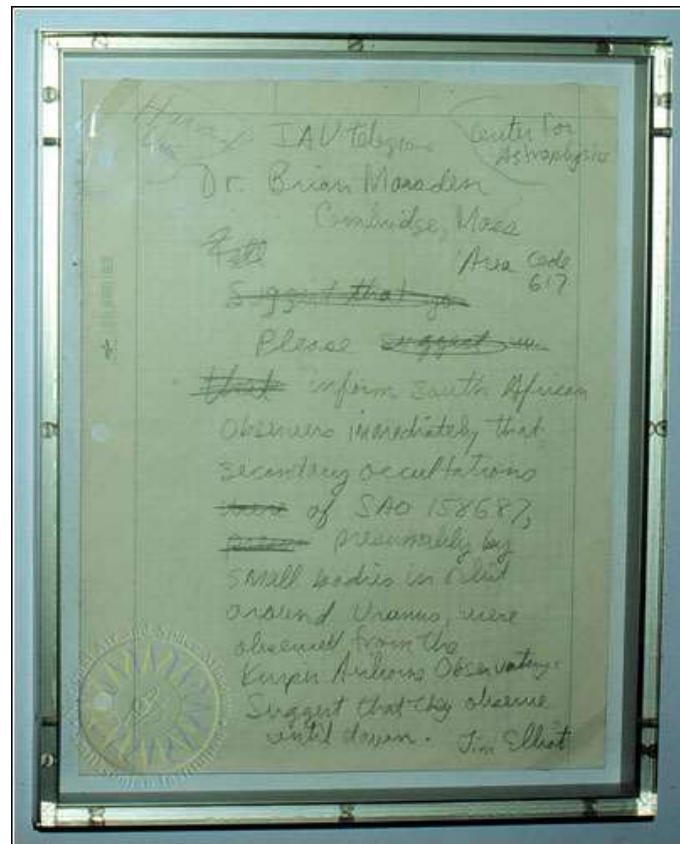 IAU telegram Center for
Astrophysics
Dr. Brian Marsden
Cambridge, Mass
Area Code
617
Tell
Suggest that
Please suggest
that inform South African
Observers immediately that
secondary occultations
were of SAO 158687,
presumably by
small bodies in orbit
around Uranus, were
observed from the
Kuiper Airborne Observatory.
Suggest that they observe
until dawn. Jim Elliot